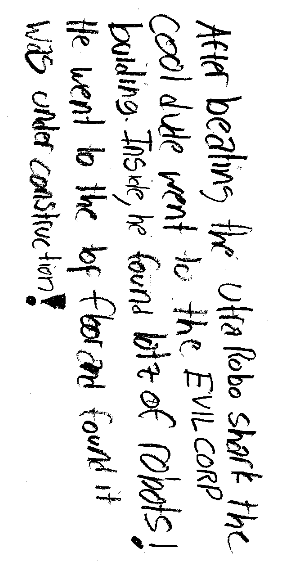 After beating the ultra Robo shark the
cool dude went to the EVIL CORP
building. Inside, he found lotz of robots!
He went to the top floor and found it
was under construction!